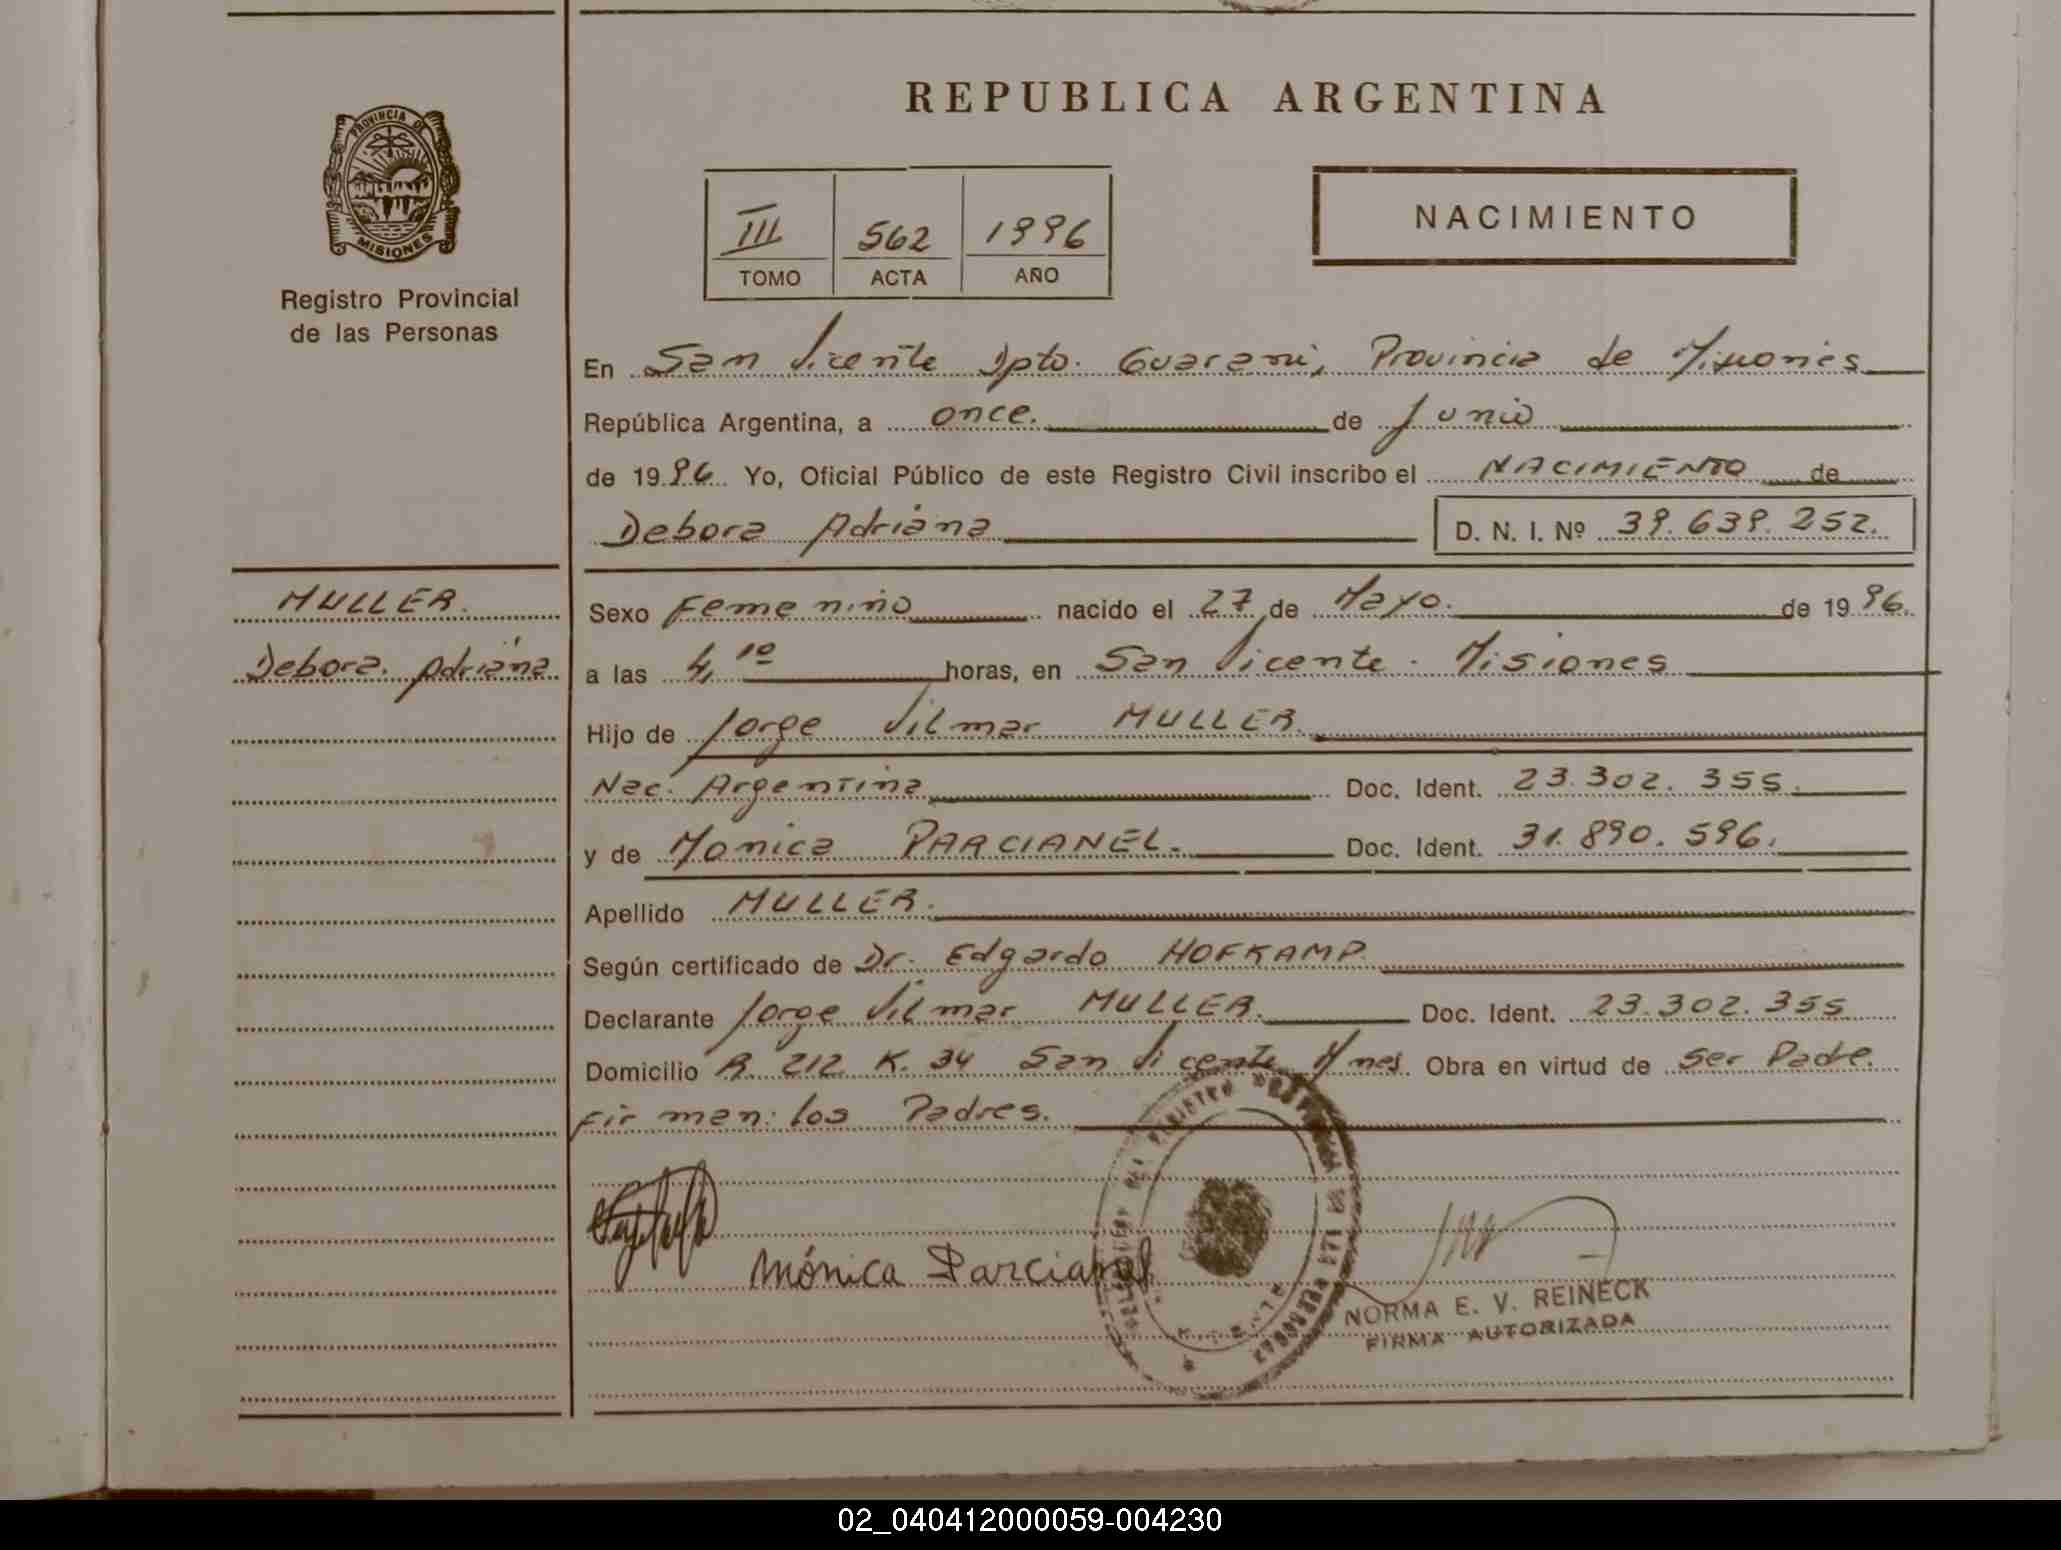 REPUBLICA ARGENTINA
PROVINCIA DE
MISIONES
Registro Provincial
de las Personas
III 562 1996
TOMO ACTA AÑO
NACIMIENTO
En San Vicente Dpto. Guarani, Provincia de Misiones
República Argentina, a once. de Junio
de 1996 Yo, Oficial Público de este Registro Civil inscribo el NACIMIENTO de
Debora Adriana D. N. I. Nº 39.639.252.
MULLER.
Debora. Adriana
Sexo Femenino nacido el 27 de Mayo. de 1996.
a las 4,10 horas, en San Vicente. Misiones
Hijo de Jorge Vilmar MULLER.
Nac. Argentina Doc. Ident. 23.302.355.
y de Monica PARCIANEL. Doc. Ident. 31.890.596.
Apellido MULLER.
Según certificado de Dr. Edgardo HOFKAMP.
Declarante Jorge Vilmar MULLER. Doc. Ident. 23.302.355
Domicilio R. 212 K. 34 San Vicente Mnes. Obra en virtud de Ser Padre.
Firman: los Padres.
Mónica Parcianel
NORMA E. V. REINECK
FIRMA AUTORIZADA
02_040412000059-004230